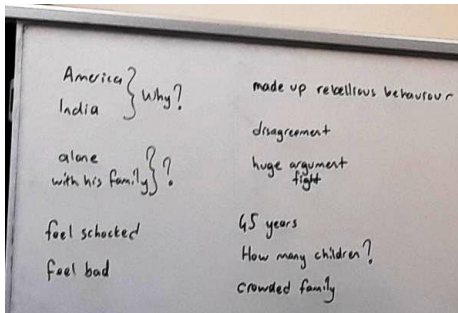 America } Why?
India
alone } ?
with his family
feel schocked
feel bad
made up rebellious behaviour
disagreement
huge argument
fight
45 years
How many children?
crowded family